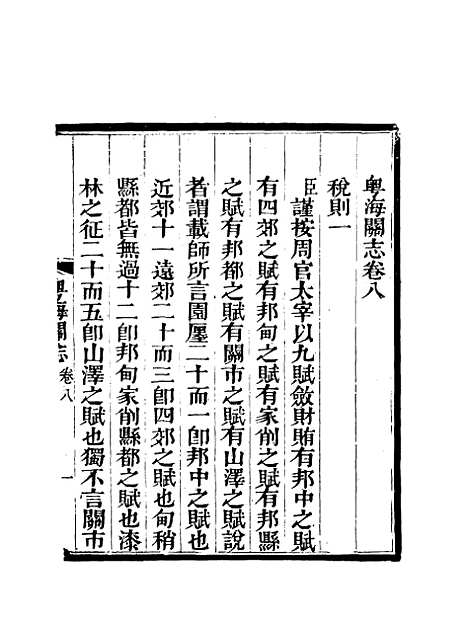 粵海關志卷八
稅則一
臣謹按周官太宰以九賦斂財賄有邦中之賦
有四郊之賦有邦甸之賦有家削之賦有邦縣
之賦有邦都之賦有關市之賦有山澤之賦說
者謂載師所言園廛二十而一卽邦中之賦也
近郊十一遠郊二十而三卽四郊之賦也甸稍
縣都皆無過十二卽邦甸家削縣都之賦也漆
林之征二十而五卽山澤之賦也獨不言關市
粵海關志 卷八 一